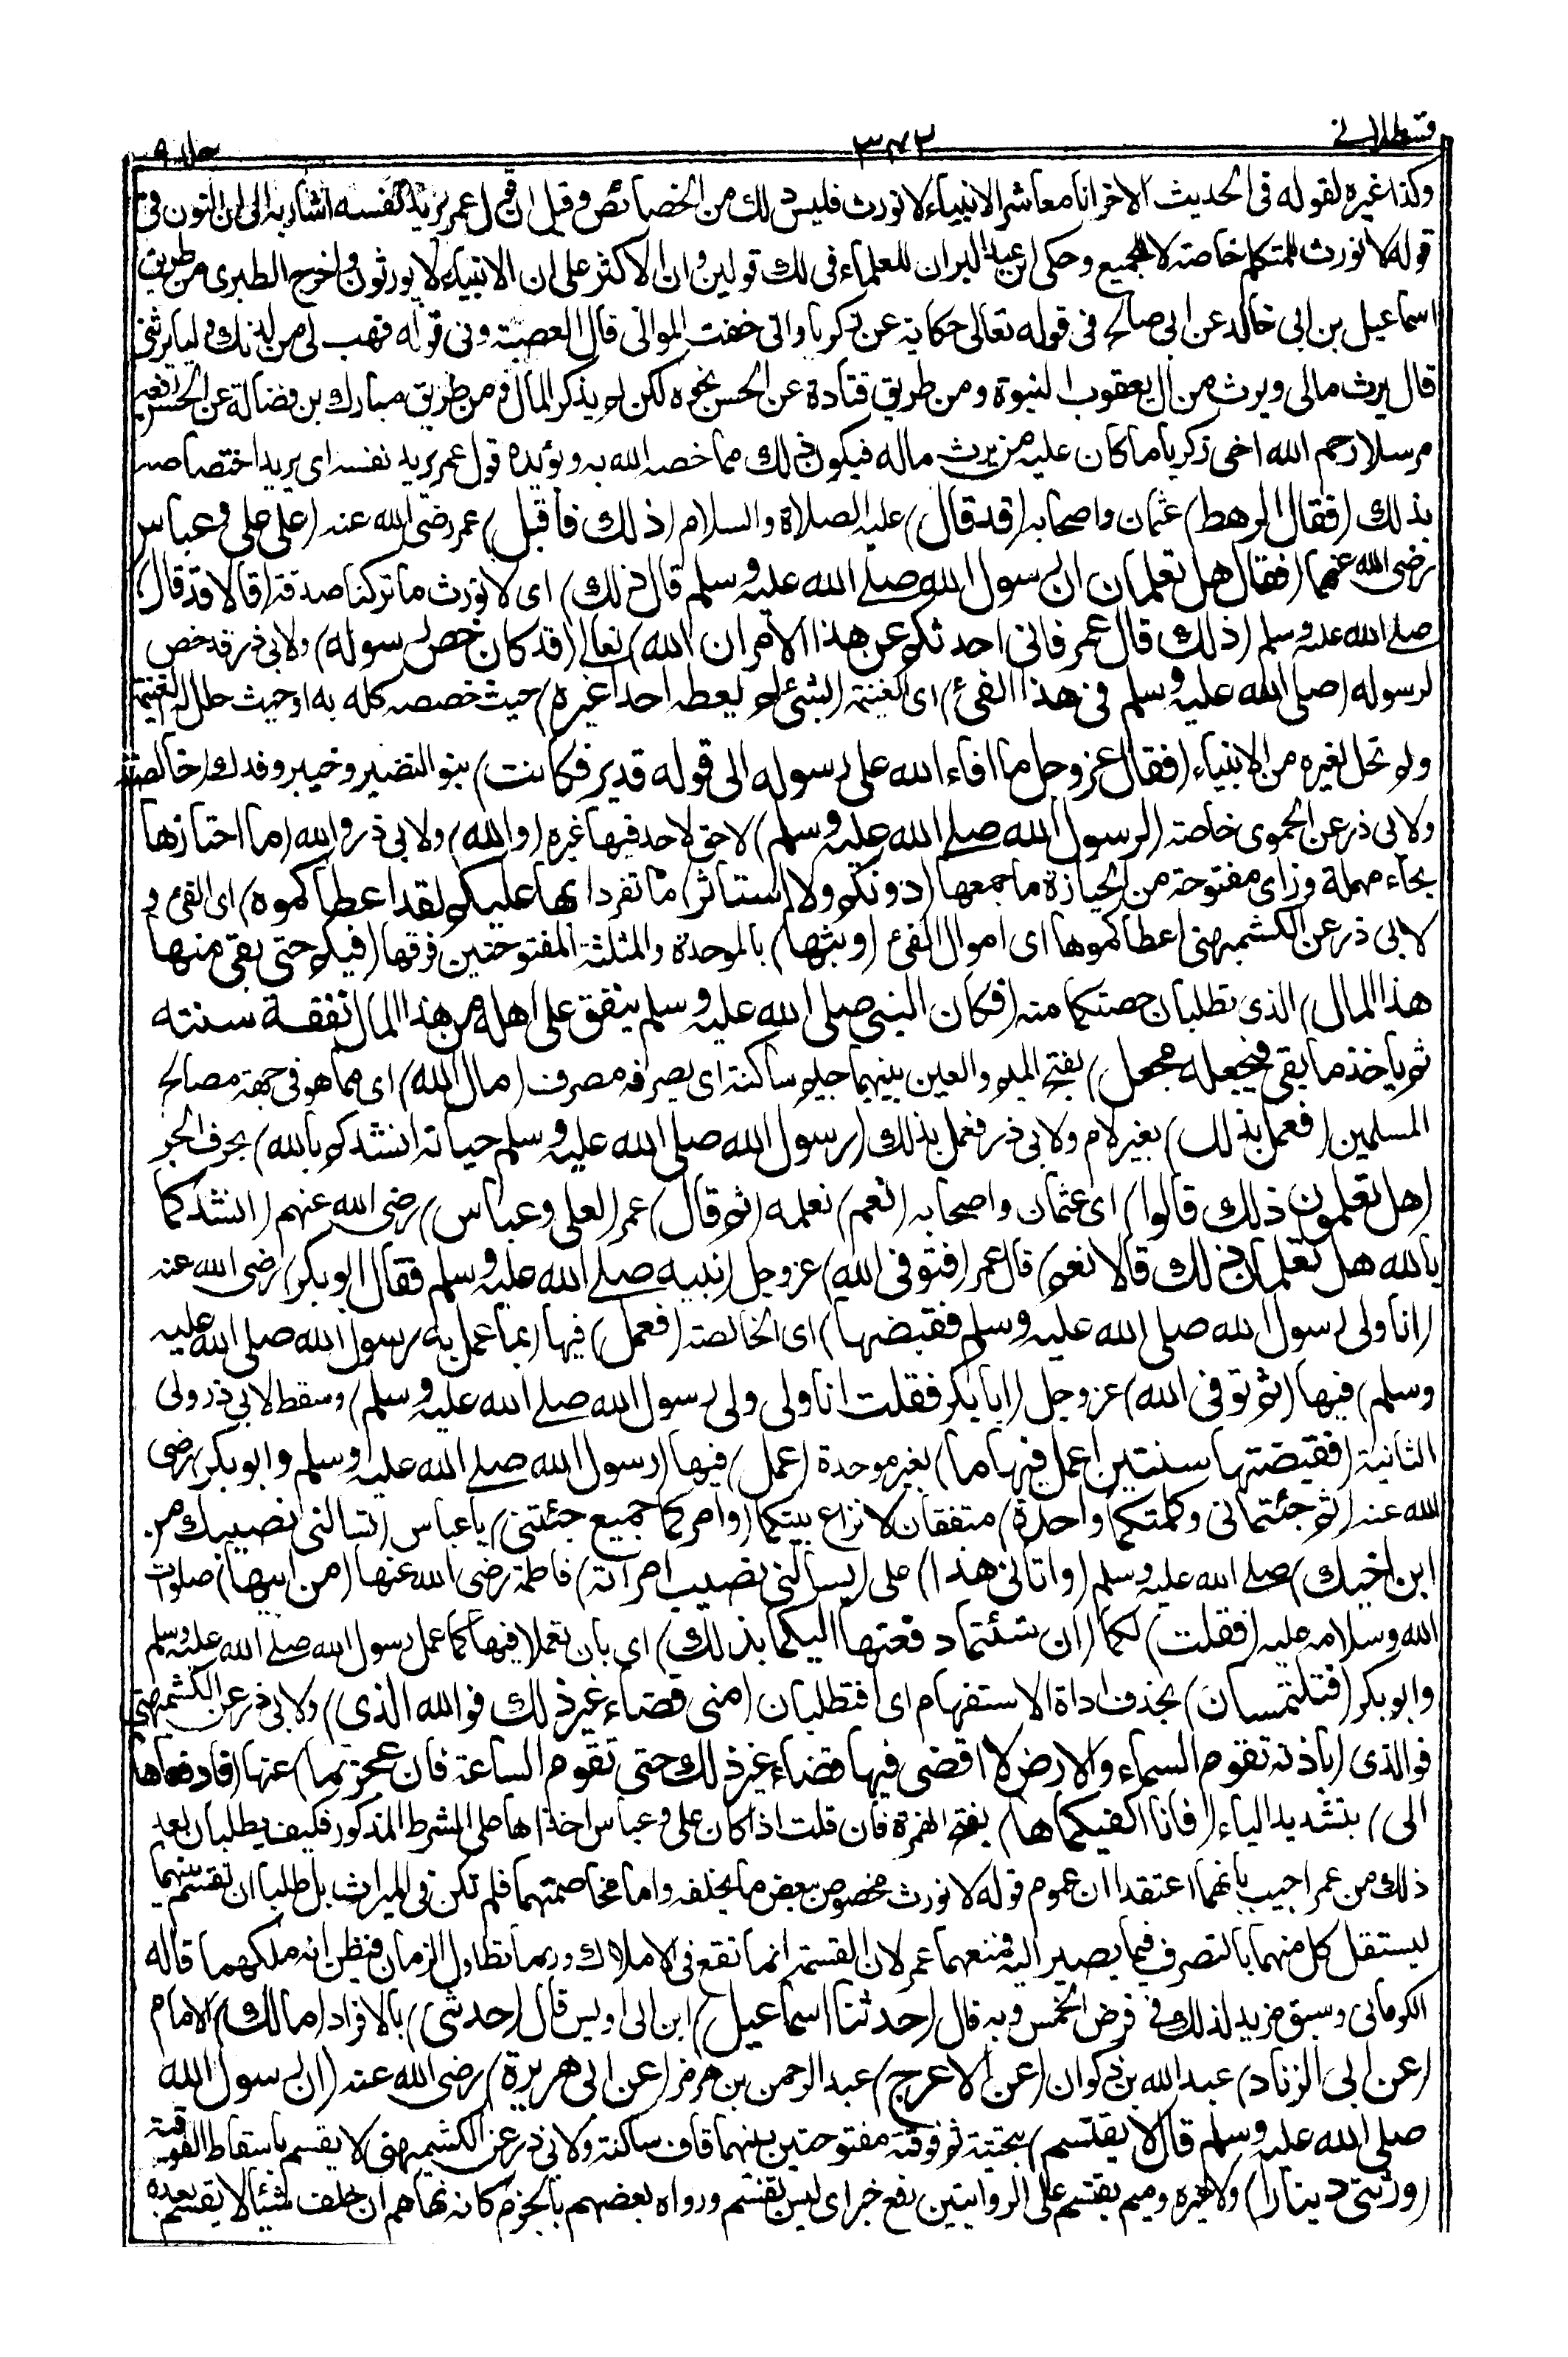 قسطلانی ۳۷۲ جلد ۹
وكذا غيره لقوله فى الحديث الاخر انا معاشر الانبياء لا نورث فليس ذلك من الخصائص وقيل ان قول عمر يريد نفسه اشار به الى ان النون فى
قوله لا نورث للمتكلم خاصة لا للجميع وحكى ابن عبد البر ان للعلماء فى ذلك قولين وان الاكثر على ان الانبياء لا يورثون واخرج الطبرى من طريق
اسماعيل بن ابى خالد عن ابى صالح فى قوله تعالى حكاية عن زكريا وانى خفت الموالى قال العصبة وفى قوله فهب لى من لدنك وليا يرثنى
قال يرث مالى ويرث من ال يعقوب النبوة ومن طريق قتادة عن الحسن نحوه لكن لم يذكر المال ومن طريق مبارك بن فضالة عن الحسن رفعه
مرسلا رحم الله اخى زكريا ما كان عليه من يرث ماله فيكون ذلك مما خصه الله به ويؤيده قول عمر يريد نفسه اى يريد اختصاصه
بذلك (فقال الرهط) عثمان واصحابه (قد قال) عليه الصلاة والسلام (ذلك فأقبل) عمر رضى الله عنه (على على وعباس
رضى الله عنهما (فقال هل تعلمان ان رسول الله صلى الله عليه وسلم قال ذلك) اى لا نورث ما تركنا صدقة (قالا قد قال)
صلى الله عليه وسلم (ذلك قال عمر فانى احدثكم عن هذا الامر ان الله) تعالى (قد كان خص رسوله) ولابى ذر قد خص
لرسوله (صلى الله عليه وسلم فى هذا الفئ) اى الغنيمة (بشئ لم يعطه احدا غيره) حيث خصصه كله به او حيث حلل له الغنيمة
ولم تحل لغيره من الانبياء (فقال عز وجل ما افاء الله على رسوله الى قوله قدير فكانت) بنو النضير وخيبر وفدك (خالصة
ولابى ذر عن الحموى خاصة (لرسول الله صلى الله عليه وسلم) لا حق لاحد فيها غيره (والله) ولابى ذر ووالله (ما احتازها
بحاء مهملة وزاى مفتوحة من الحيازة ما جمعها (دونكم ولا استأثر) ما تفرد (بها عليكم لقد اعطاكموه) اى الفئ و
لابى ذر عن الكشميهنى اعطاكموها اى اموال الفئ (وبثها) بالموحدة والمثلثة المفتوحتين فرقها (فيكم حتى بقى منها
هذا المال) الذى تطلبان حصتكما منه (فكان النبى صلى الله عليه وسلم ينفق على اهله من هذا المال نفقة سنته
ثم يأخذ ما بقى فيجعله مجعل) بفتح الميم والعين بينهما جيم ساكنة اى يصرفه مصرف (مال الله) اى مما هو فى جهة مصالح
المسلمين (فعمل بذلك) بغير لام ولابى ذر فعمل بذلك (رسول الله صلى الله عليه وسلم حياته انشدكم بالله) بحرف الجر
(هل تعلمون ذلك قالوا) اى عثمان واصحابه (نعم) نعلمه (ثم قال) عمر (لعلى وعباس) رضى الله عنهم (انشدكما
بالله هل تعلمان ذلك قالا نعم) قال عمر (فتوفى الله) عز وجل (نبيه صلى الله عليه وسلم فقال ابو بكر) رضى الله عنه
(انا ولى رسول الله صلى الله عليه وسلم فقبضها) اى الخالصة (فعمل) فيها (بما عمل به رسول الله صلى الله عليه
وسلم) فيها (ثم توفى الله) عز وجل (ابا بكر فقلت انا ولى ولى رسول الله صلى الله عليه وسلم) وسقط لابى ذر ولى
الثانية (فقبضتها سنتين اعمل فيها ما) بغير موحدة (عمل) فيها (رسول الله صلى الله عليه وسلم وابو بكر) رضى
الله عنه (ثم جئتمانى وكلمتكما واحدة) متفقان لا نزاع بينكما (وامركما جميع جئتنى) يا عباس (تسالنى نصيبك من
ابن اخيك) صلى الله عليه وسلم (واتانى هذا) على (يسالنى نصيب امرأته) فاطمة رضى الله عنها (من ابيها) صلوات
الله وسلامه عليه (فقلت) لكما (ان شئتما دفعتها اليكما بذلك) اى بان تعملا فيها كما عمل رسول الله صلى الله عليه وسلم
وابو بكر (فتلتمسان) بحذف اداة الاستفهام اى افتطلبان (منى قضاء غير ذلك فوالله الذى) ولابى ذر عن الكشميهنى
فوالذى (باذنه تقوم السماء والارض لا اقضى فيها قضاء غير ذلك حتى تقوم الساعة فان عجزتما) عنها (فادفعاها
الى) بتشديد الياء (فانا اكفيكماها) بفتح الهمزة فان قلت اذا كان على وعباس اخذاها على الشرط المذكور فكيف يطلبان بعد
ذلك من عمر اجيب بانهما اعتقدا ان عموم قوله لا نورث مخصوص ببعض ما يخلفه واما مخاصمتهما فلم تكن فى الميراث بل طلبا ان تقسم بينهما
ليستقل كل منهما بالتصرف فيما يصير اليه فمنعهما عمر لان القسمة انما تقع فى الاملاك وربما تطاول الزمان فيظن انه ملكهما قاله
الكرمانى وسبق مزيد لذلك فى فرض الخمس وبه قال (حدثنا اسماعيل) ابن ابى اويس قال (حدثنى) بالافراد (مالك) الامام
(عن ابى الزناد) عبد الله بن ذكوان (عن الاعرج) عبد الرحمن بن هرمز (عن ابى هريرة) رضى الله عنه (ان رسول الله
صلى الله عليه وسلم قال لا يقتسم) بتحتية ثم فوقية مفتوحتين بينهما قاف ساكنة ولابى ذر عن الكشميهنى لا يقسم باسقاط الفوقية
(ورثتى دينارا) ولا غيره وميم يقتسم على الروايتين رفع خبر اى ليس يقتسم ورواه بعضهم بالجزم كانه نهاهم ان خلف شيئا لا يقسم بعده